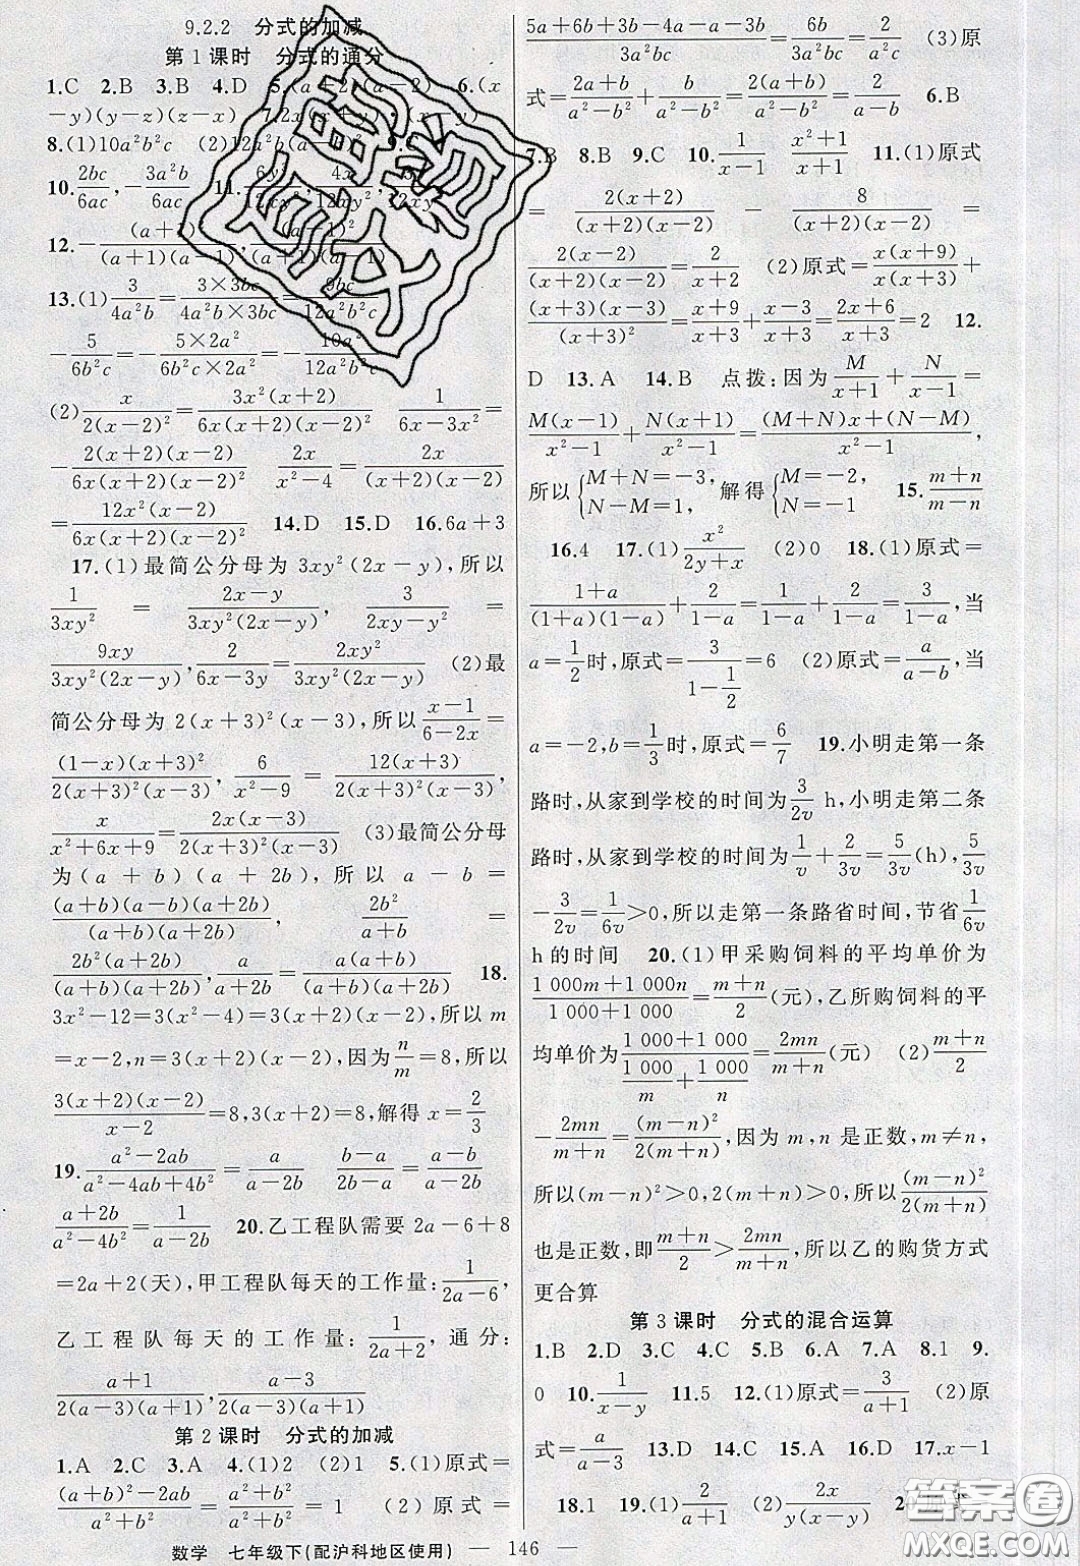 9.2.2 分式的加减
第1课时 分式的通分
1.C 2.B 3.B 4.D 5.(a+2)(a-2) 6.(x
-y)(y-z)(z-x) 7.2x(x+y)(x-y)
8.(1)10a²b²c (2)12a²b
10.2bc/6ac,-3a²b/6ac 11.
13.(1)3/4a²b=3×3bc/4a²b×3bc=9bc/12a²b²c
-5/6b²c=-5×2a²/6b²c×2a²=-10a²/12a²b²c
(2)x/2(x-2)²=3x²(x+2)/6x(x+2)(x-2)² 1/6x-3x²=
-2(x+2)(x-2)/6x(x+2)(x-2)² 2x/x²-4=2x/(x+2)(x-2)
=12x²(x-2)/6x(x+2)(x-2)² 14.D 15.D 16.6a+3
17.(1)最简公分母为3xy²(2x-y),所以
1/3xy²=2x-y/3xy²(2x-y),3/2xy-y²=
9xy/3xy²(2x-y),2/6x-3y=2xy²/3xy²(2x-y) (2)最
简公分母为2(x+3)²(x-3),所以x-1/6-2x=
(1-x)(x+3)²/2(x+3)²(x-3),6/x²-9=12(x+3)/2(x+3)²(x-3),
x/x²+6x+9=2x(x-3)/2(x+3)²(x-3) (3)最简公分母
为(a+b)(a+2b),所以a-b=
(a+b)(a-b)(a+2b)/(a+b)(a+2b),2b²/a+b=
2b²(a+2b)/(a+b)(a+2b),a/a+2b=a(a+b)/(a+b)(a+2b) 18.
3x²-12=3(x²-4)=3(x+2)(x-2),所以m
=x-2,n=3(x+2)(x-2),因为n/m=8,所以
3(x+2)(x-2)/x-2=8,3(x+2)=8,解得x=2/3
19.a²-2ab/a²-4ab+4b²=a/a-2b b-a/2b-a=a-b/a-2b
a+2b/a²-4b²=1/a-2b 20.乙工程队需要2a-6+8
=2a+2(天),甲工程队每天的工作量:1/2a-6,
乙工程队每天的工作量:1/2a+2,通分:
a+1/2(a-3)(a+1),a-3/2(a-3)(a+1)
第2课时 分式的加减
1.A 2.C 3.A 4.(1)2 (2)1 5.(1)原式=
(a+b)²-2ab/a²+b²=a²+b²/a²+b²=1 (2)原式=
5a+6b+3b-4a-a-3b/3a²bc=6b/3a²bc=2/a²c (3)原
式=2a+b/a²-b²+b/a²-b²=2a+2b/a²-b²=2/a-b 6.B
7.B 8.B 9.C 10.1/x-1 x²+1/x+1 11.(1)原式
=2(x+2)/(x+2)(x-2)-8/(x+2)(x-2)=
2(x-2)/(x+2)(x-2)=2/x+2 (2)原式=x(x+9)/x(x+3)+
(x+3)(x-3)/(x+3)²=x+9/x+3+x-3/x+3=2x+6/x+3=2 12.
D 13.A 14.B 点拨:因为M/x+1+N/x-1=
M(x-1)/x²-1+N(x+1)/x²-1=(M+N)x+(N-M)/x²-1,
所以{M+N=-3,N-M=1,解得{M=-2,N=-1, 15.m+n/m-n
16.4 17.(1)x²/2y+x (2)0 18.(1)原式=
1+a/(1+a)(1-a)+2/1-a=1/1-a+2/1-a=3/1-a,当
a=1/2时,原式=3/1-1/2=6 (2)原式=a/a-b,当
a=-2,b=1/3时,原式=6/7 19.小明走第一条
路时,从家到学校的时间为3/2v h,小明走第二条
路时,从家到学校的时间为1/v+2/3v=5/3v(h),5/3v
-3/2v=1/6v>0,所以走第一条路省时间,节省1/6v
h的时间 20.(1)甲采购饲料的平均单价为
1 000m+1 000n/1 000+1 000=m+n/2(元),乙所购饲料的平
均单价为1 000+1 000/1 000/m+1 000/n=2mn/m+n(元) (2)m+n/2
-2mn/m+n=(m-n)²/2(m+n),因为m,n是正数,m≠n,
所以(m-n)²>0,2(m+n)>0,所以(m-n)²/2(m+n)
也是正数,即m+n/2>2mn/m+n,所以乙的购货方式
更合算
第3课时 分式的混合运算
1.B 2.D 3.C 4.C 5.B 6.A 7.A 8.1 9.
0 10.1/x-y 11.5 12.(1)原式=3/a+1 (2)原
式=a/a-3 13.D 14.C 15.A 16.D 17.x-1
18.1 19.(1)2/a+1 (2)2x/x-y
数学 七年级下(配沪科地区使用) — 146 —
答案圈
MXQE.COM